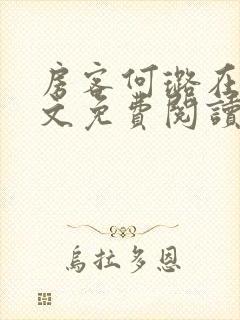 房客何璐在
文免费閱讀
烏拉多恩